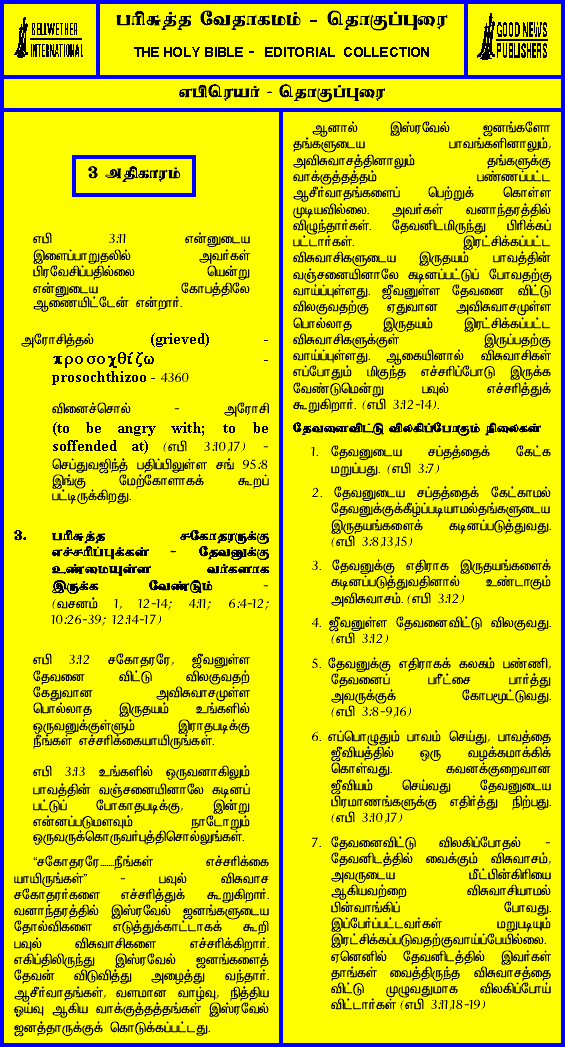 BELLWETHER
INTERNATIONAL
பரிசுத்த வேதாகமம் - தொகுப்புரை
THE HOLY BIBLE - EDITORIAL COLLECTION
GOOD NEWS
PUBLISHERS
எபிரெயர் - தொகுப்புரை
3 அதிகாரம்
எபி 3:11 என்னுடைய
இளைப்பாறுதலில் அவர்கள்
பிரவேசிப்பதில்லை யென்று
என்னுடைய கோபத்திலே
ஆணையிட்டேன் என்றார்.
அரோசித்தல் (grieved) -
προσοχθίζω -
prosochthizoo - 4360
வினைச்சொல் - அரோசி
(to be angry with; to be
soffended at) (எபி 3:10,17) -
செப்துவஜிந்த் பதிப்பிலுள்ள சங் 95:8
இங்கு மேற்கோளாகக் கூறப்
பட்டிருக்கிறது.
3. பரிசுத்த சகோதரருக்கு
எச்சரிப்புக்கள் - தேவனுக்கு
உண்மையுள்ள வர்களாக
இருக்க வேண்டும் -
(வசனம் 1, 12-14; 4:11; 6:4-12;
10:26-39; 12:14-17)
எபி 3:12 சகோதரரே, ஜீவனுள்ள
தேவனை விட்டு விலகுவதற்
கேதுவான அவிசுவாசமுள்ள
பொல்லாத இருதயம் உங்களில்
ஒருவனுக்குள்ளும் இராதபடிக்கு
நீங்கள் எச்சரிக்கையாயிருங்கள்.
எபி 3:13 உங்களில் ஒருவனாகிலும்
பாவத்தின் வஞ்சனையினாலே கடினப்
பட்டுப் போகாதபடிக்கு, இன்று
என்னப்படுமளவும் நாடோறும்
ஒருவருக்கொருவர்புத்திசொல்லுங்கள்.
"சகோதரரே.......நீங்கள் எச்சரிக்கை
யாயிருங்கள்" - பவுல் விசுவாச
சகோதரர்களை எச்சரித்துக் கூறுகிறார்.
வனாந்தரத்தில் இஸ்ரவேல் ஜனங்களுடைய
தோல்விகளை எடுத்துக்காட்டாகக் கூறி
பவுல் விசுவாசிகளை எச்சரிக்கிறார்.
எகிப்திலிருந்து இஸ்ரவேல் ஜனங்களைத்
தேவன் விடுவித்து அழைத்து வந்தார்.
ஆசீர்வாதங்கள், வளமான வாழ்வு, நித்திய
ஓய்வு ஆகிய வாக்குத்தத்தங்கள் இஸ்ரவேல்
ஜனத்தாருக்குக் கொடுக்கப்பட்டது.
ஆனால் இஸ்ரவேல் ஜனங்களோ
தங்களுடைய பாவங்களினாலும்,
அவிசுவாசத்தினாலும் தங்களுக்கு
வாக்குத்தத்தம் பண்ணப்பட்ட
ஆசீர்வாதங்களைப் பெற்றுக் கொள்ள
முடியவில்லை. அவர்கள் வனாந்தரத்தில்
விழுந்தார்கள். தேவனிடமிருந்து பிரிக்கப்
பட்டார்கள். இரட்சிக்கப்பட்ட
விசுவாசிகளுடைய இருதயம் பாவத்தின்
வஞ்சனையினாலே கடினப்பட்டுப் போவதற்கு
வாய்ப்புள்ளது. ஜீவனுள்ள தேவனை விட்டு
விலகுவதற்கு ஏதுவான அவிசுவாசமுள்ள
பொல்லாத இருதயம் இரட்சிக்கப்பட்ட
விசுவாசிகளுக்குள் இருப்பதற்கு
வாய்ப்புள்ளது. ஆகையினால் விசுவாசிகள்
எப்போதும் மிகுந்த எச்சரிப்போடு இருக்க
வேண்டுமென்று பவுல் எச்சரித்துக்
கூறுகிறார். (எபி 3:12-14).
தேவனைவிட்டு விலகிப்போகும் நிலைகள்
1. தேவனுடைய சப்தத்தைக் கேட்க
மறுப்பது. (எபி 3:7)
2. தேவனுடைய சப்தத்தைக் கேட்காமல்
தேவனுக்குக்கீழ்ப்படியாமல்தங்களுடைய
இருதயங்களைக் கடினப்படுத்துவது.
(எபி 3:8,13,15)
3. தேவனுக்கு எதிராக இருதயங்களைக்
கடினப்படுத்துவதினால் உண்டாகும்
அவிசுவாசம். (எபி 3:12)
4. ஜீவனுள்ள தேவனைவிட்டு விலகுவது.
(எபி 3:12)
5. தேவனுக்கு எதிராகக் கலகம் பண்ணி,
தேவனைப் பரீட்சை பார்த்து
அவருக்குக் கோபமூட்டுவது.
(எபி 3:8-9,16)
6. எப்பொழுதும் பாவம் செய்து, பாவத்தை
ஜீவியத்தில் ஒரு வழக்கமாக்கிக்
கொள்வது. கவனக்குறைவான
ஜீவியம் செய்வது தேவனுடைய
பிரமாணங்களுக்கு எதிர்த்து நிற்பது.
(எபி 3:10,17)
7. தேவனைவிட்டு விலகிப்போதல் -
தேவனிடத்தில் வைக்கும் விசுவாசம்,
அவருடைய மீட்பின்கிரியை
ஆகியவற்றை விசுவாசியாமல்
பின்வாங்கிப் போவது.
இப்பேர்ப்பட்டவர்கள் மறுபடியும்
இரட்சிக்கப்படுவதற்குவாய்ப்பேயில்லை.
ஏனெனில் தேவனிடத்தில் இவர்கள்
தாங்கள் வைத்திருந்த விசுவாசத்தை
விட்டு முழுவதுமாக விலகிப்போய்
விட்டார்கள் (எபி 3:11,18-19)